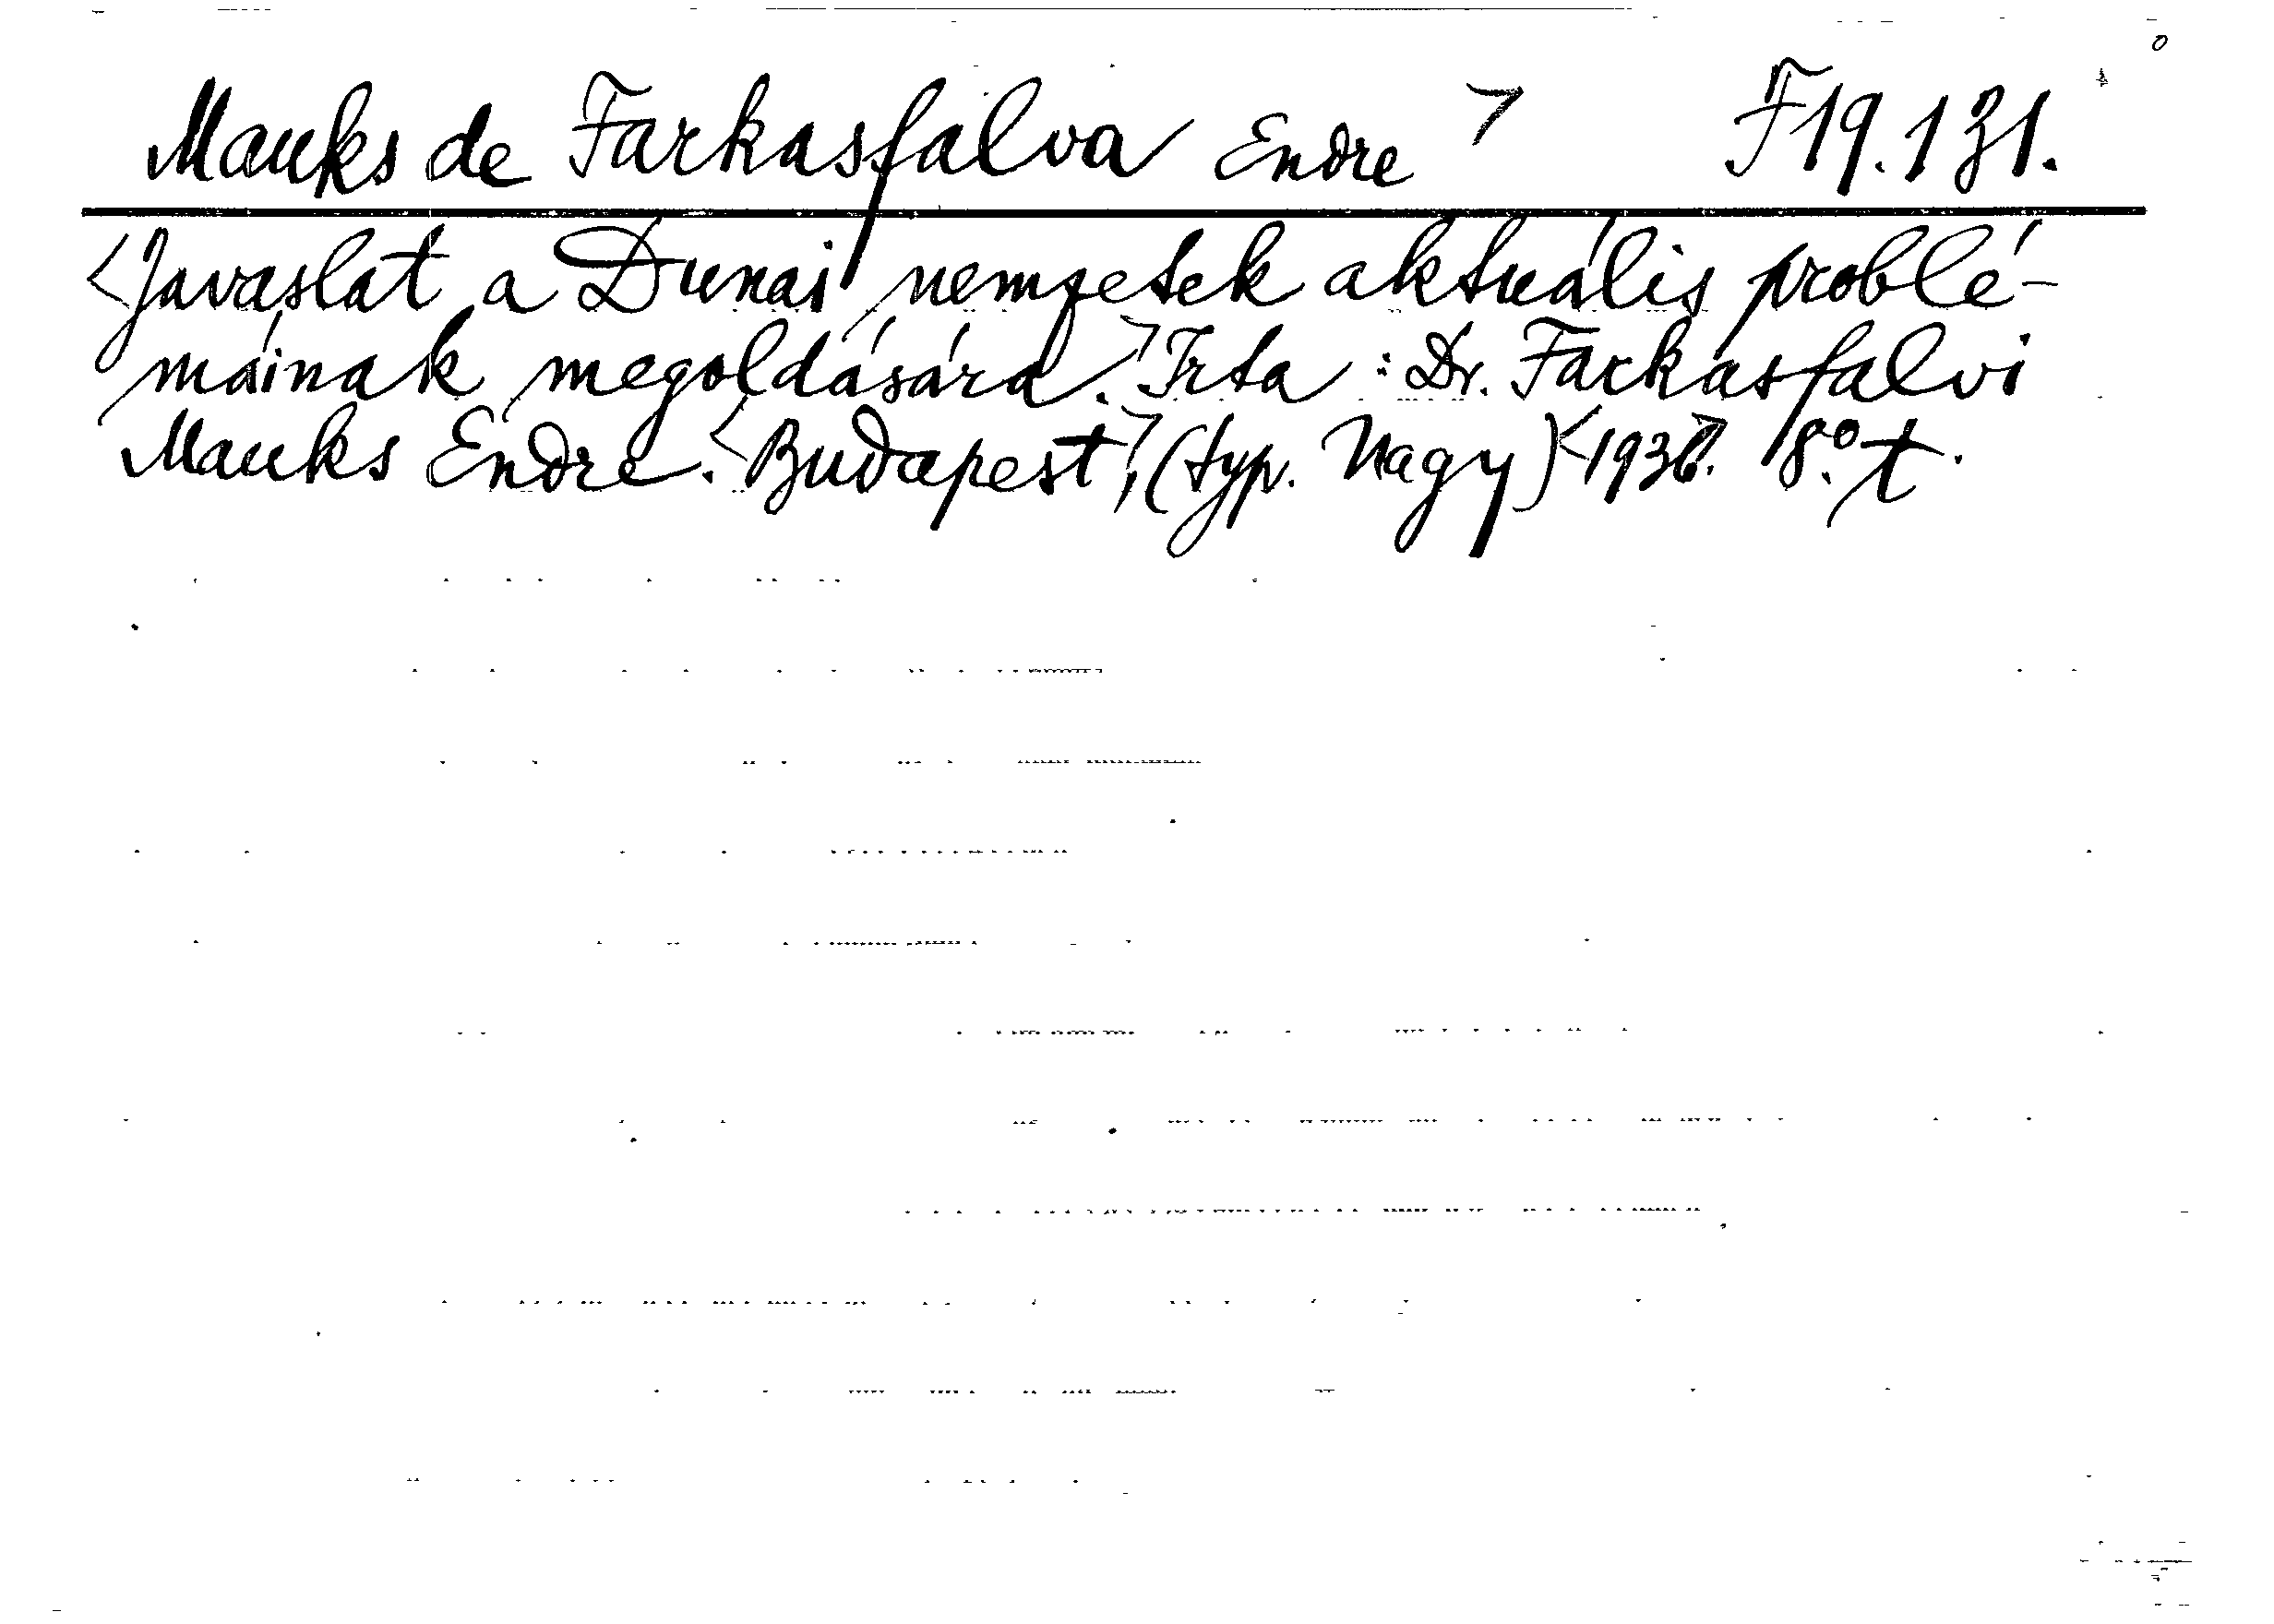 Mauks de Farkasfalva Endre > F19.131.
<Javaslat a Dunai nemzetek aktuális problé-
máinak megoldására.> Irta: Dr. Farkasfalvi
Mauks Endre. <Budapest>, (typ. Nagy) <1936>. 8.° t.